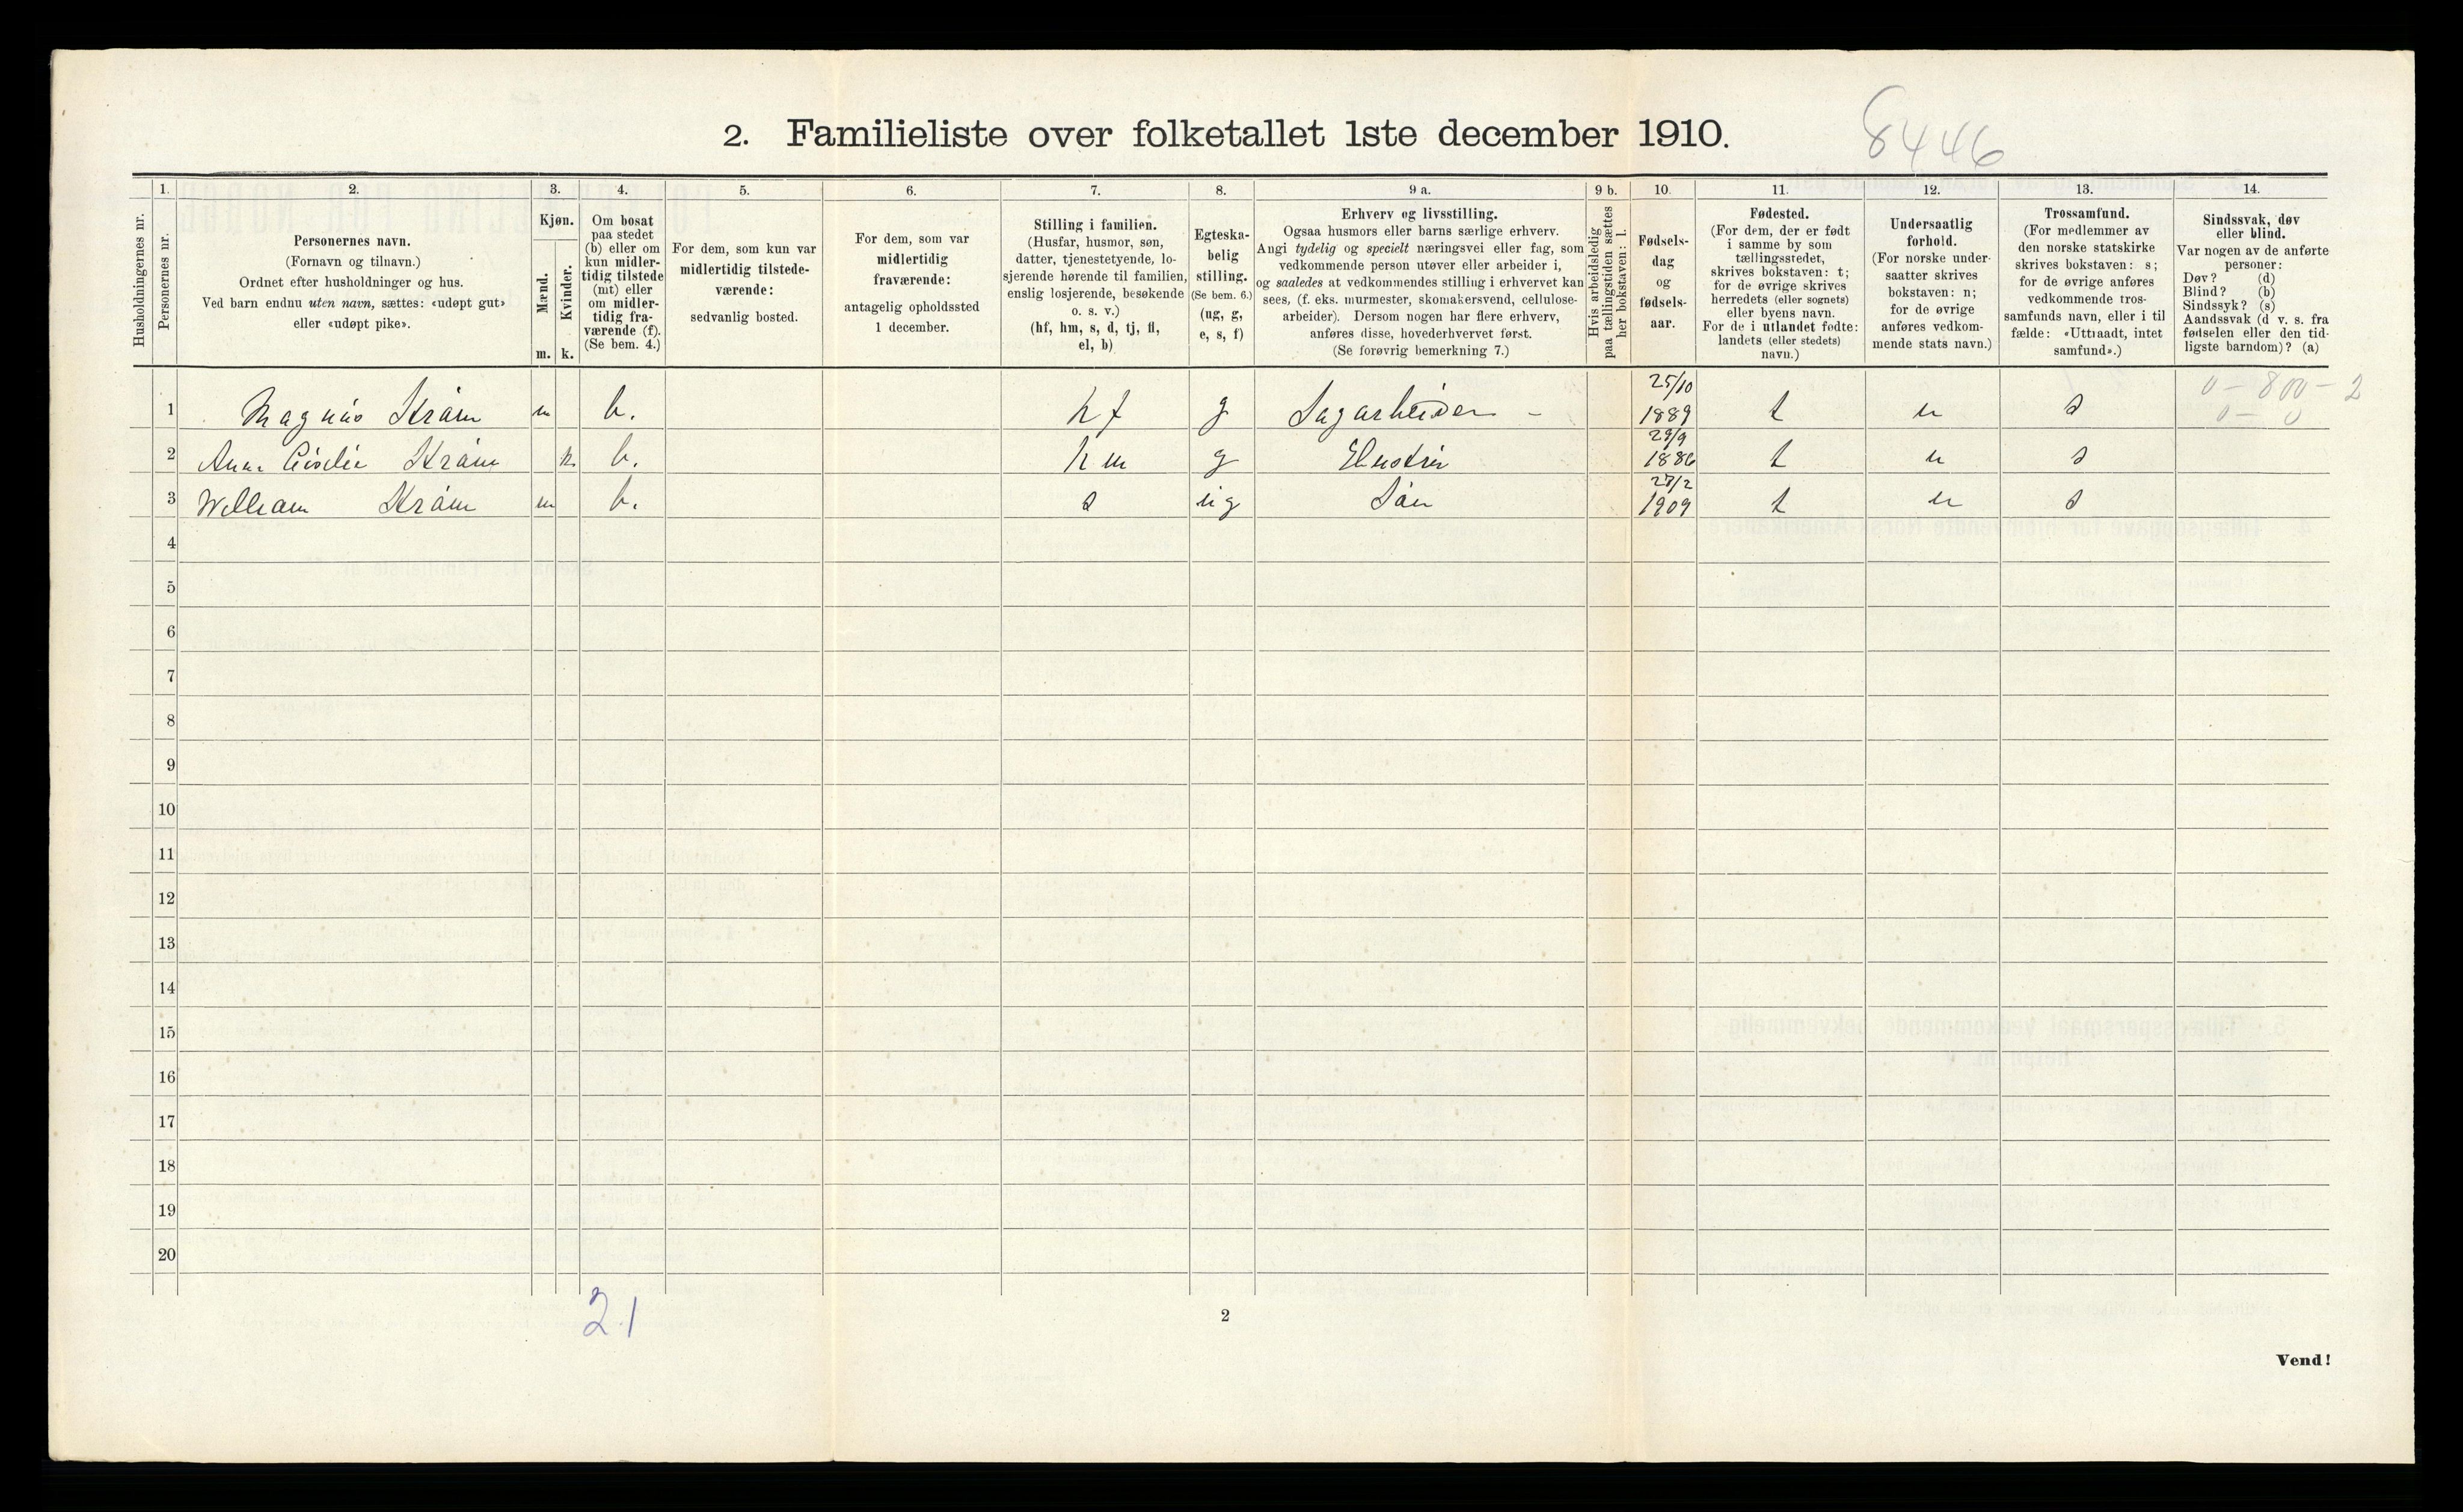 2. Familieliste over folketallet 1ste december 1910.
8446
Husholdningernes nr.
1.
Personernes nr.
2.
Personernes navn.
(Fornavn og tilnavn.)
Ordnet efter husholdninger og hus.
Ved barn endnu uten navn, sættes: «udøpt gut»
eller «udøpt pike».
3.
Kjøn.
Mænd.
m.
Kvinder.
k.
4.
Om bosat
paa stedet
(b) eller om
kun midler-
tidig tilstede
(mt) eller
om midler-
tidig fra-
værende (f).
(Se bem. 4.)
5.
For dem, som kun var
midlertidig tilstede-
værende:
sedvanlig bosted.
6.
For dem, som var
midlertidig
fraværende:
antagelig opholdssted
1 december.
7.
Stilling i familien.
(Husfar, husmor, søn,
datter, tjenestetyende, lo-
sjerende hørende til familien,
enslig losjerende, besøkende
o. s. v.)
(hf, hm, s, d, tj, fl,
el, b)
8.
Egteska-
belig
stilling.
(Se bem. 6.)
(ug, g,
e, s, f)
9 a.
Erhverv og livsstilling.
Ogsaa husmors eller barns særlige erhverv.
Angi tydelig og specielt næringsvei eller fag, som
vedkommende person utøver eller arbeider i,
og saaledes at vedkommendes stilling i erhvervet kan
sees, (f. eks. murmester, skomakersvend, cellulose-
arbeider). Dersom nogen har flere erhverv,
anføres disse, hovederhvervet først.
(Se forøvrig bemerkning 7.)
9 b.
Hvis arbeidsledig
paa tællingstiden sættes
her bokstaven: l.
10.
Fødsels-
dag
og
fødsels-
aar.
11.
Fødested.
(For dem, der er født
i samme by som
tællingsstedet,
skrives bokstaven: t;
for de øvrige skrives
herredets (eller sognets)
eller byens navn.
For de i utlandet fødte:
landets (eller stedets)
navn.)
12.
Undersaatlig
forhold.
(For norske under-
saatter skrives
bokstaven: n;
for de øvrige
anføres vedkom-
mende stats navn.)
13.
Trossamfund.
(For medlemmer av
den norske statskirke
skrives bokstaven: s;
for de øvrige anføres
vedkommende tros-
samfunds navn, eller i til
fælde: «Uttraadt, intet
samfund».)
14.
Sindssvak, døv
eller blind.
Var nogen av de anførte
personer:
Døv? (d)
Blind? (b)
Sindssyk? (s)
Aandssvak (d v. s. fra
fødselen eller den tid-
ligste barndom)? (a)
1 Magnus Kråm m b. hf g Sagarbeider - 25/10 1889 t n s 0 - 800 - 2
0 - 0
2 Anna Kråm k. b. hm g Hustru 29/9 1886 t n s
3 William Kråm m b. s ug Sån 27/2 1909 t n s
4
5
6
7
8
9
10
11
12
13
14
15
16
17
18
19
20
2.1
2
Vend!